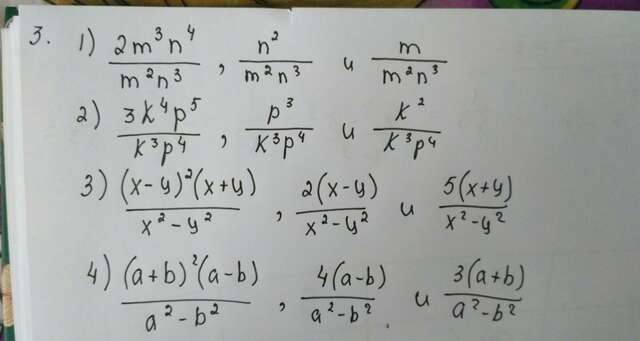 3. 1) 2m³n⁴/m²n³, n²/m²n³ и m/m²n³
2) 3k⁴p⁵/k³p⁴, p³/k³p⁴ и k²/k³p⁴
3) (x-y)²(x+y)/x²-y², 2(x-y)/x²-y² и 5(x+y)/x²-y²
4) (a+b)²(a-b)/a²-b², 4(a-b)/a²-b² и 3(a+b)/a²-b²